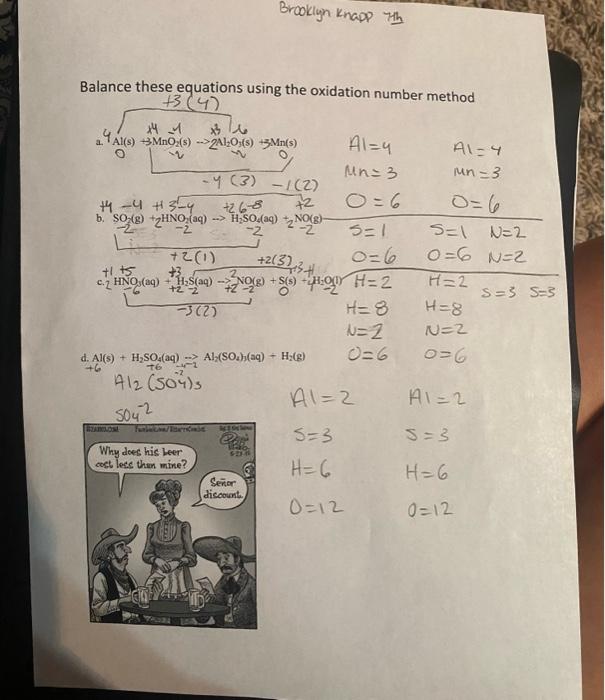 Brooklyn Knapp 7th
Balance these equations using the oxidation number method
+3(4)
a. 4 Al(s) +3MnO₂(s) -->2Al₂O₃(s) +3Mn(s)
0 -2 -2 0
-4(3)
Al=4 Al=4
Mn=3 Mn=3
O=6 O=6
-1(2)
+4 -4 +1 +3 -4 +2 6 -8 +2
b. SO₂(g) +2HNO₂(aq) --> H₂SO₄(aq) +2NO(g)
-2 -2 -2 -2
+2(1)
S=1 S=1 N=2
O=6 O=6 N=2
H=2 H=2
+2(3)
+1 +5 +3
c. 2 HNO₃(aq) + H₂S(aq) --> 2NO(g) + S(s) +4H₂O(l)
-6 +2 -2 +2 -2 0 -2
-3(2)
S=3 S=3
H=8 H=8
N=2 N=2
O=6 O=6
d. Al(s) + H₂SO₄(aq) --> Al₂(SO₄)₃(aq) + H₂(g)
+6 +6
Al2(SO4)3
SO4-2
Al=2 Al=2
S=3 S=3
H=6 H=6
O=12 O=12
Why does his beer
cost less than mine?
Señor
discount.